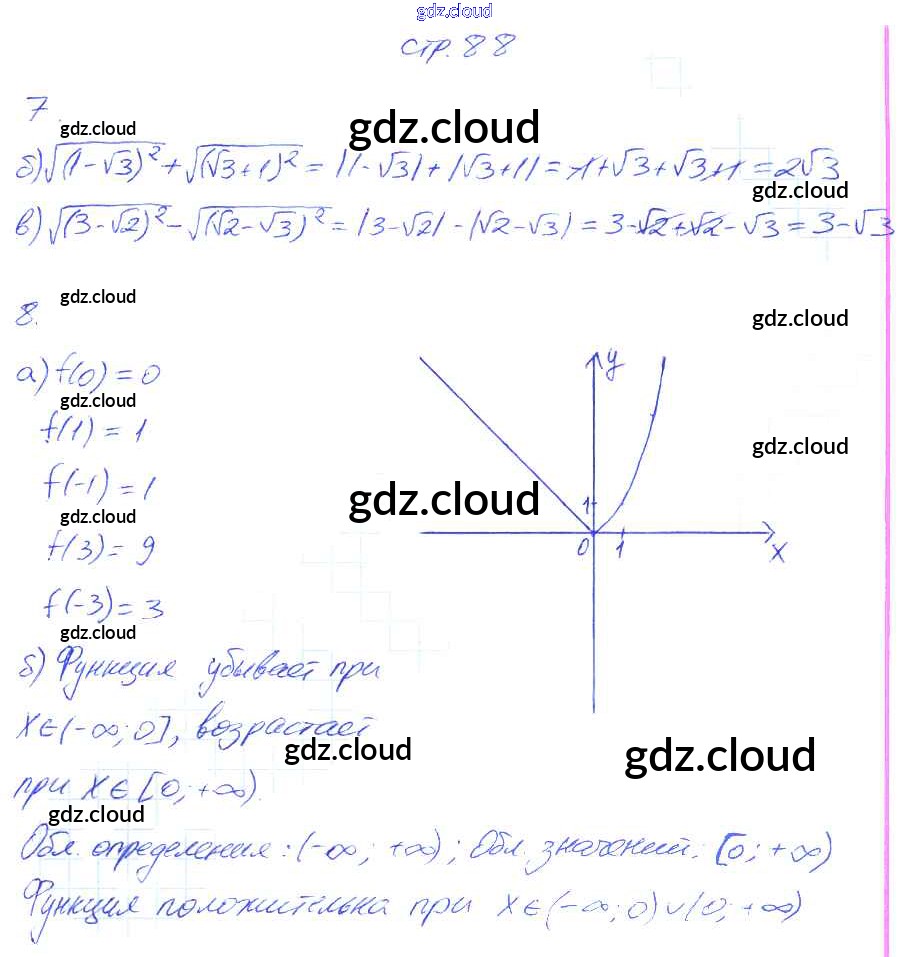 gdz.cloud
стр. 88
7.
gdz.cloud
gdz.cloud
б) √(1-√3)² + √(√3+1)² = |1-√3| + |√3+1| = -1+√3+√3+1 = 2√3
gdz.cloud
в) √(3-√2)² - √(√2-√3)² = |3-√2| - |√2-√3| = 3-√2+√2-√3 = 3-√3
8.
gdz.cloud
gdz.cloud
а) f(0) = 0
gdz.cloud
f(1) = 1
gdz.cloud
f(-1) = 1
gdz.cloud
gdz.cloud
f(3) = 9
f(-3) = 3
gdz.cloud
y
1
0
1
x
б) Функция убывает при
x∈(-∞; 0], возрастает
gdz.cloud
gdz.cloud
при x∈[0; +∞).
gdz.cloud
Обл. определения: (-∞; +∞); Обл. значений: [0; +∞)
Функция положительна при x∈(-∞; 0)∪(0; +∞)